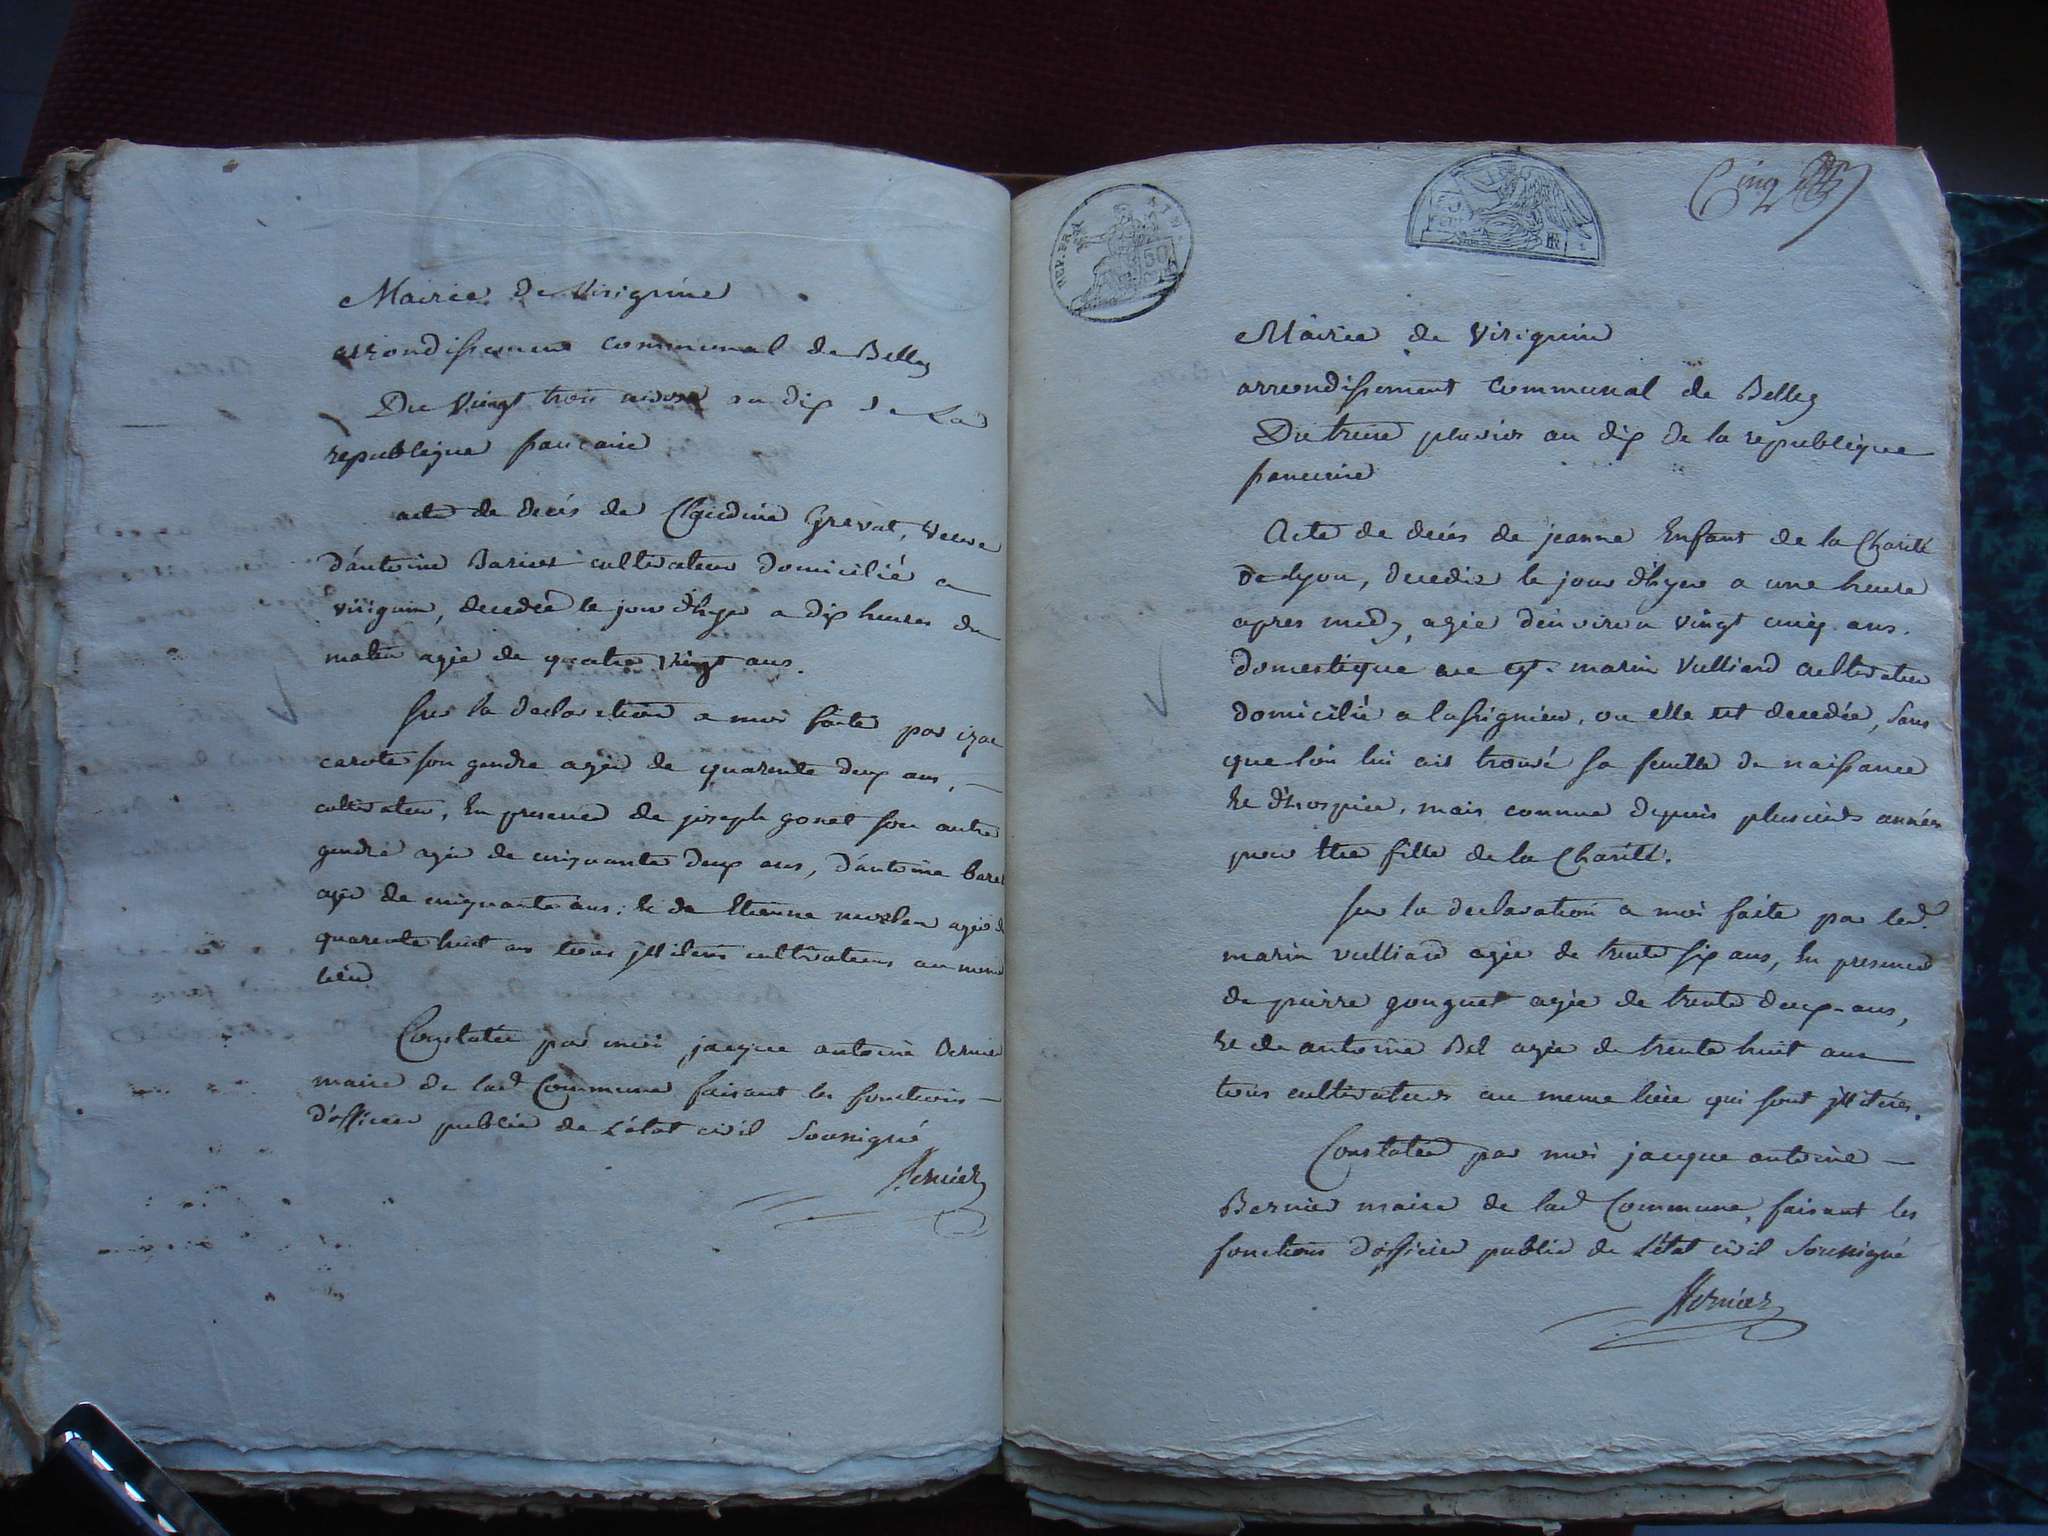 Mairie de Virignin
arrondissement communal de Belley
Du vingt trois nivose an dix de La
republique francaise
acte de decés de Claudine Gravat, Veuve
d'antoine Barier cultivateur domicilié a
virignin, decedée le jour d'hyer a dix heures du
matin agée de quatre vingt ans.
sur la declaration a moi faite par izac
carote son gendre agée de quarente deux ans, —
cultivateur, En presence de joseph gonet son autre
gendre agée de cinquante deux ans, d'antoine
agée de cinquante ans; Et de Etienne agée de
quarente huit ans tous jlliterés cultivateurs au meme
lieu
Constatée par moi jacque antoine Bernier
maire de lad. Commune faisant les fonctions —
d'officier public de L'état civil Sousigné
Bernier
REP. FRA 50
Cinq
Mairie de Virignin
arrondissement Communal de Belley
Du treize pluviose an dix de la republique
francaise
Acte de decés de jeanne Enfant de la Charité
de lyon, decedée le jour d'hyer a une heure
apres midy, agée d'environ vingt cinq ans.
domestique marin Vulliard cultivateur
domicilié a lassignieu, ou elle est decedée, sans
que l'on lui ait trouvé sa feuille de naissance
Et d'hospice, mais connue depuis plusieurs années
pour être fille de la Charité.
sur la declaration a moi faite par led.
marin vulliard agée de trente six ans, En presence
de pierre gouguet agée de trente deux ans,
Et de antoine Bel agée de trente huit ans
tous cultivateurs au meme lieu qui sont jlliterés.
Constatée par moi jacque antoine —
Bernier maire de lad. Commune, faisant les
fonctions d'officier public de L'état civil Sousigné
Bernier